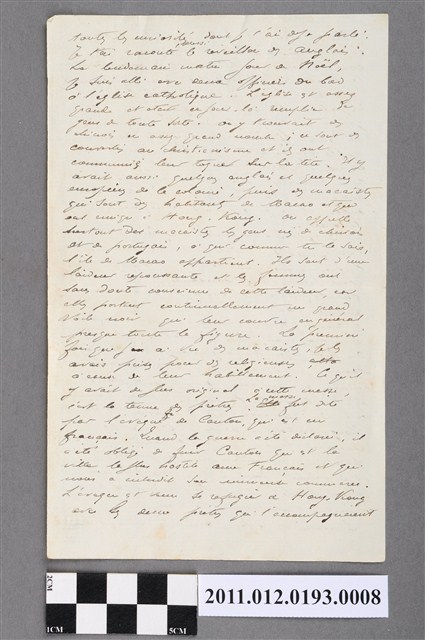 toutes les curiosités dont j't'ai déjà parlé.
Je t'ai raconté aussi le reveillon des anglais.
Le lendemain matin jour de Noël,
je suis allé avec deux officiers du bord
à l'église catholique. L'église est assez
grande et était en peu remplie de
gens de toute sorte. on y trouvait des
chinois en assez grand nombre; ce sont des
convertis au christianisme et ils ont
communié leur toque sur la tête. Il y
avait aussi quelques anglais et quelques
européens de la colonie, puis des macaistes
qui sont des habitants de Macao et qui
ont émigré à Hong-Kong. On appelle
surtout des macaistes les gens nés de chinois
et de portugais, à qui comme tu le sais,
l'île de Macao appartient. Ils sont d'une
laideur repoussante et les femmes ont
sans doute conscience de cette laideur, car
elles portent continuellement un grand
voile noir qui leur couvre en général
presque toute la figure. La première
fois que j'en ai vu des macaistes, je les
avais prises pour des religieuses
à cause de leur habillement. Ce qu'il
y avait de plus original à cette messe
c'est la tenue des prêtres. La messe fut dite
par l'évêque de Canton qui est un
français. Quand la guerre a été déclarée, il
a été obligé de fuir Canton qui est la
ville la plus hostile aux Français et qui
nous a interdit son commerce.
L'évêque est venu se réfugier à Hong-Kong
avec les deux prêtres qui l'accompagnaient
2CM
1CM
5CM
2011.012.0193.0008